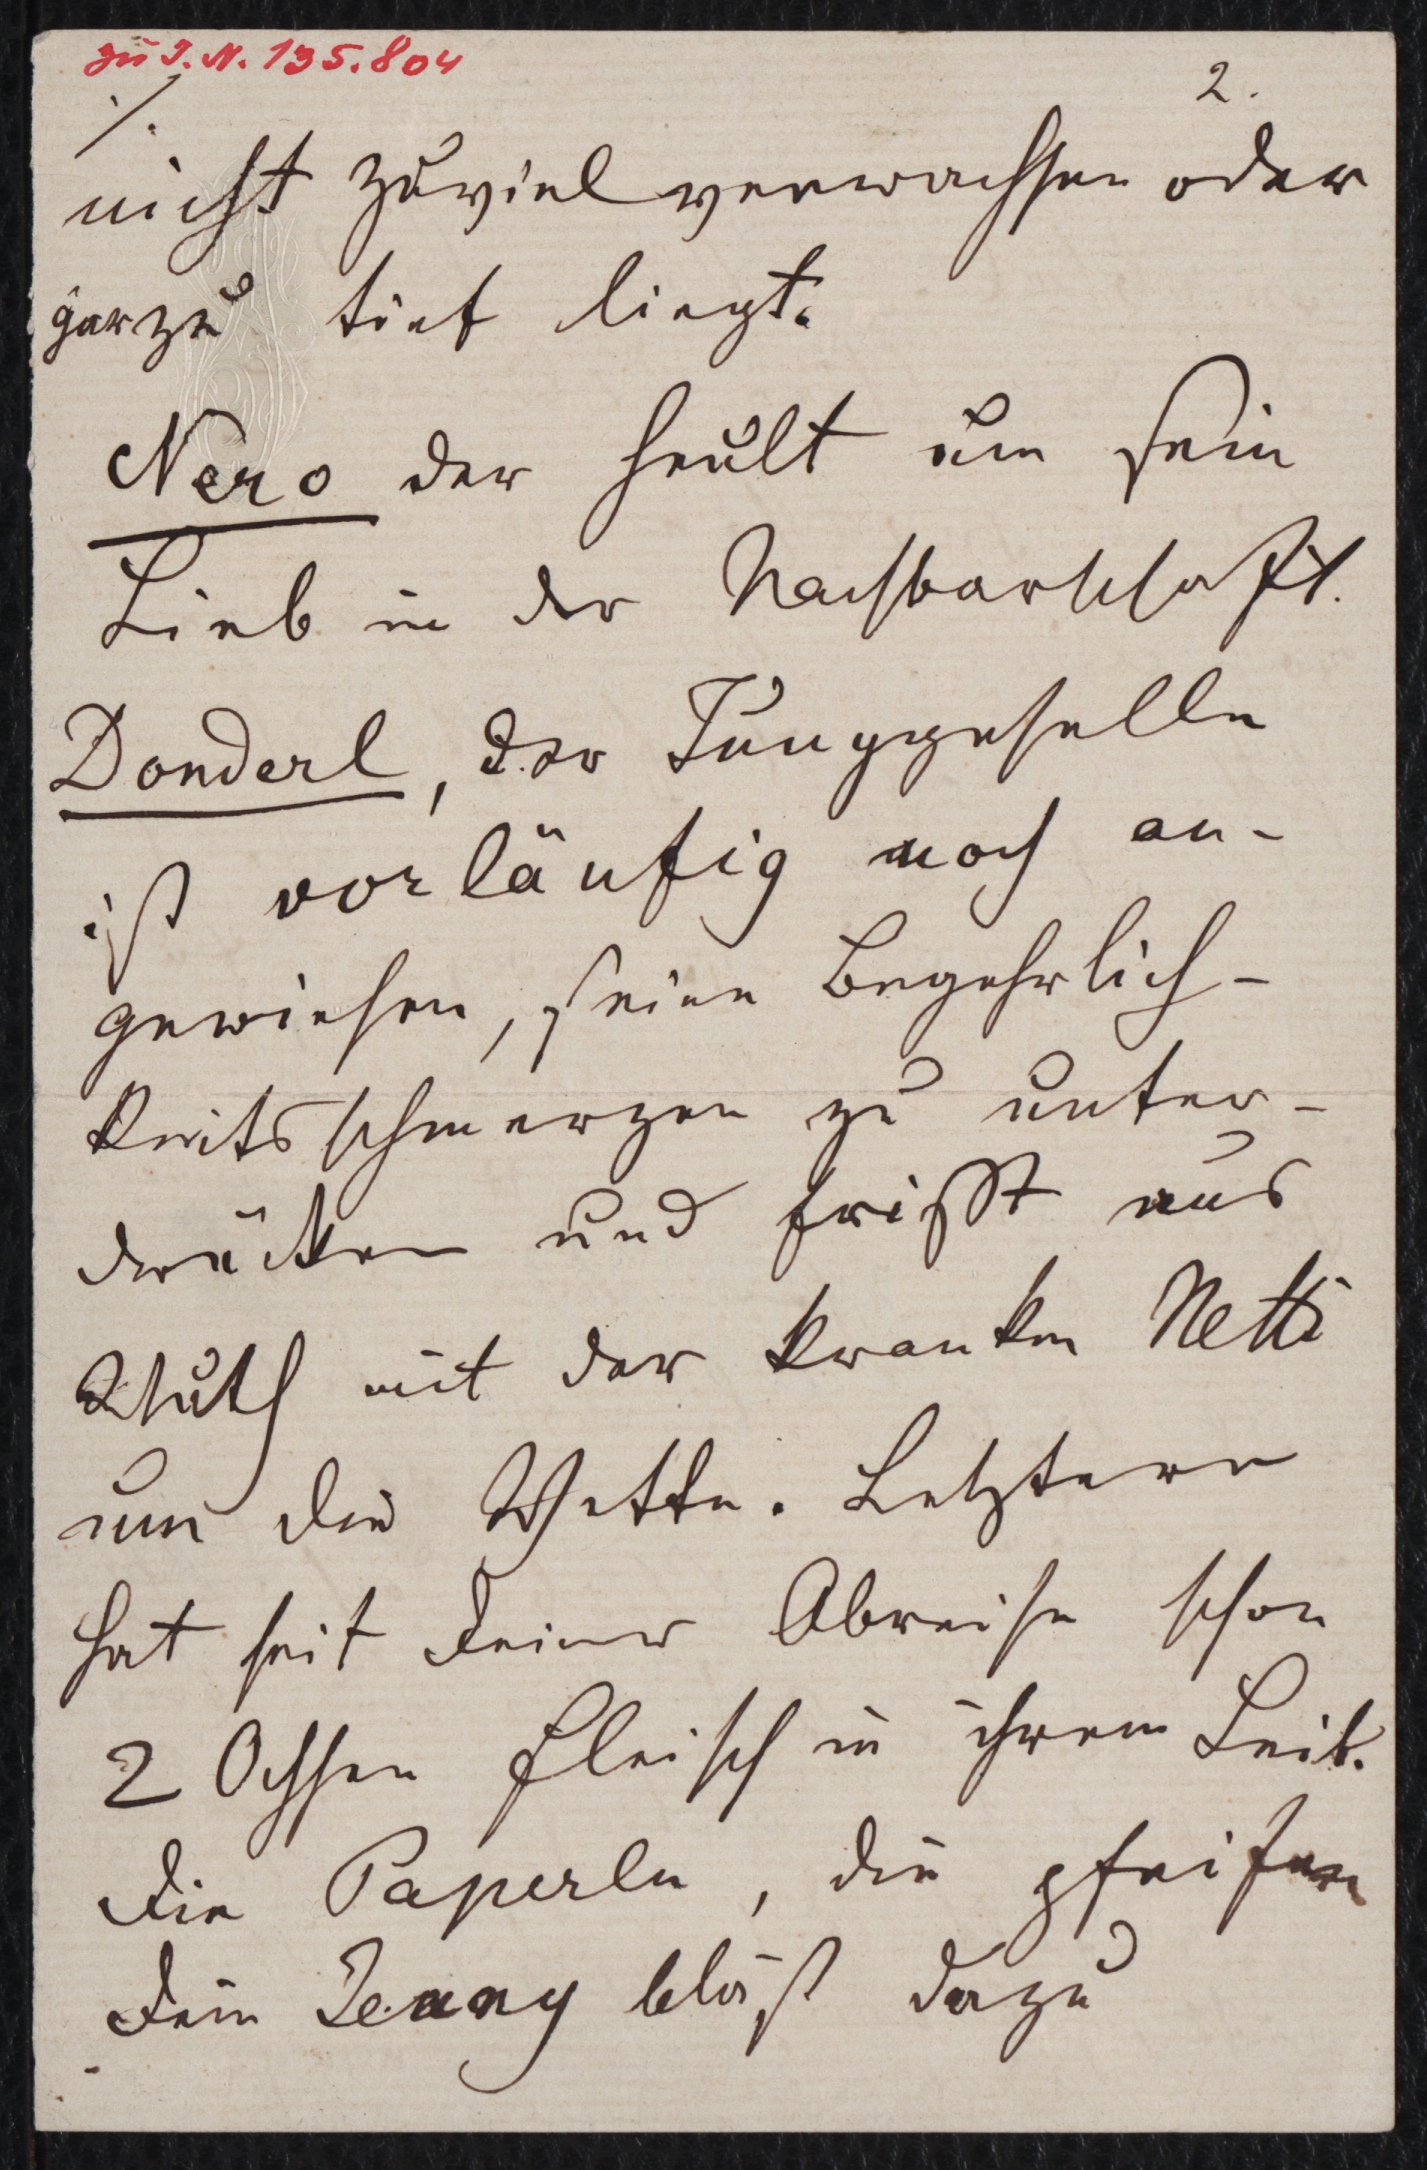 zu I.N. 135.804
2.
./.
nicht zuviel verwachsen oder
garzu tief liegt.
Nero der heult um sein
Lieb in der Nachbarschaft.
Donderl, der Junggeselle
ist vorläufig noch an-
gewiesen, seine Begehrlich-
keitsschmerzen zu unter-
drücken und frißt aus
Wuth mit der kranken Netti
um die Wette. Letztere
hat seit Deiner Abreise schon
2 Ochsen Fleisch in ihrem Leib.
Die Paperln, die pfeifen
Dein Jenny bläst dazu